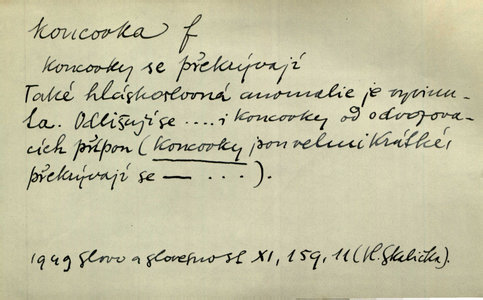 koncovka f
koncovky se překrývají
Také hláskoslovná anomalie je vyvinu-
la. Odlišují se .... i koncovky od odvozova-
cích přípon (koncovky jsou velmi krátké,
překrývají se — ...).
1949 Slovo a slovesnost XI, 159, 11 (Vl. Skalička).